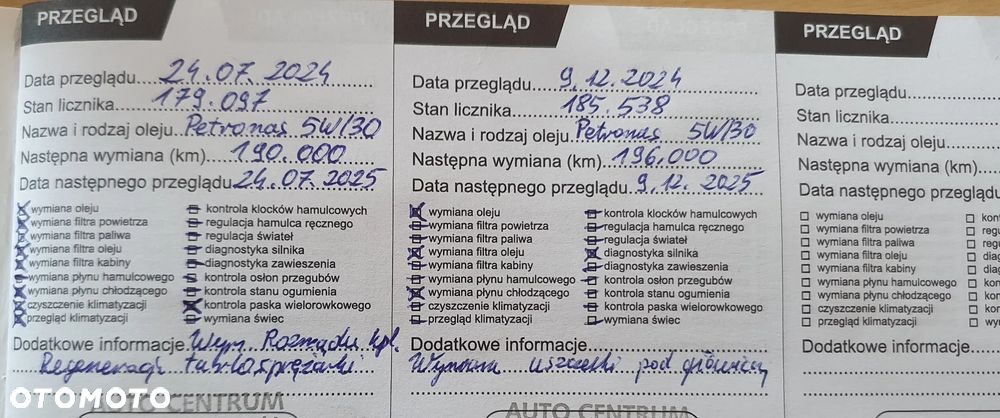 PRZEGLĄD
Data przeglądu 24.07.2024
Stan licznika 179.097
Nazwa i rodzaj oleju Petronas 5W/30
Następna wymiana (km) 190.000
Data następnego przeglądu 24.07.2025
wymiana oleju
wymiana filtra powietrza
wymiana filtra paliwa
wymiana filtra oleju
wymiana filtra kabiny
wymiana płynu hamulcowego
wymiana płynu chłodzącego
czyszczenie klimatyzacji
przegląd klimatyzacji
kontrola klocków hamulcowych
regulacja hamulca ręcznego
regulacja świateł
diagnostyka silnika
diagnostyka zawieszenia
kontrola osłon przegubów
kontrola stanu ogumienia
kontrola paska wielorowkowego
wymiana świec
Dodatkowe informacje Wym. Rozrządu kpl.
Regeneracja turbosprężarki
AUTO CENTRUM
PRZEGLĄD
Data przeglądu 9.12.2024
Stan licznika 185.538
Nazwa i rodzaj oleju Petronas 5W/30
Następna wymiana (km) 196.000
Data następnego przeglądu 9.12.2025
wymiana oleju
wymiana filtra powietrza
wymiana filtra paliwa
wymiana filtra oleju
wymiana filtra kabiny
wymiana płynu hamulcowego
wymiana płynu chłodzącego
czyszczenie klimatyzacji
przegląd klimatyzacji
kontrola klocków hamulcowych
regulacja hamulca ręcznego
regulacja świateł
diagnostyka silnika
diagnostyka zawieszenia
kontrola osłon przegubów
kontrola stanu ogumienia
kontrola paska wielorowkowego
wymiana świec
Dodatkowe informacje
Wymiana uszczelki pod głowicą
AUTO CENTRUM
PRZEGLĄD
Data przeglądu
Stan licznika
Nazwa i rodzaj oleju
Następna wymiana (km)
Data następnego przeglądu
wymiana oleju
wymiana filtra powietrza
wymiana filtra paliwa
wymiana filtra oleju
wymiana filtra kabiny
wymiana płynu hamulcowego
wymiana płynu chłodzącego
czyszczenie klimatyzacji
przegląd klimatyzacji
Dodatkowe informacje
OTOMOTO